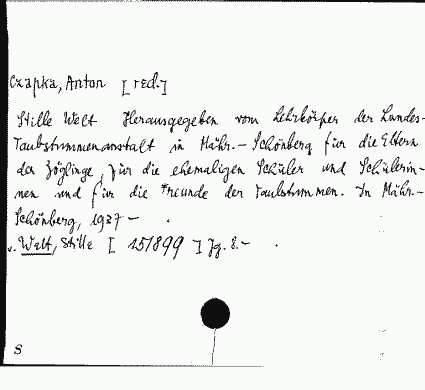 Czapka, Anton [red.]
Stille Welt Herausgegeben vom Lehrkörper der Landes-
Taubstummenanstalt in Mähr.- Schönberg für die Eltern
der Zöglinge, für die ehemaligen Schüler und Schülerin-
nen und für die Freunde der Taubstummen. In Mähr.-
Schönberg, 1937 -
v. Welt, Stille [ 151899 ] Jg. 8.-
S